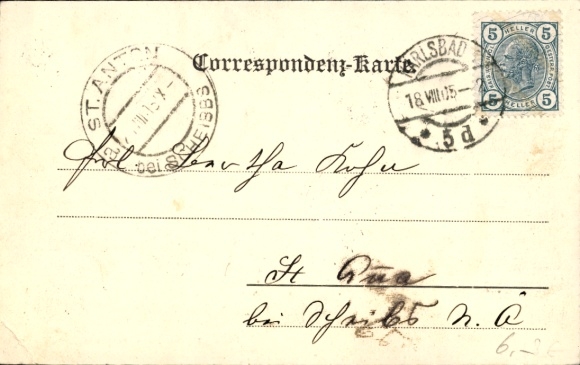 Correspondenz-Karte
ST. ANTON
bei SCHEIBBS
KARLSBAD
18.VIII.05
* 5d *
5 HELLER 5
5 HELLER 5
Frl Bertha Kohn
St
bei Scheibs N. Ö
6,-